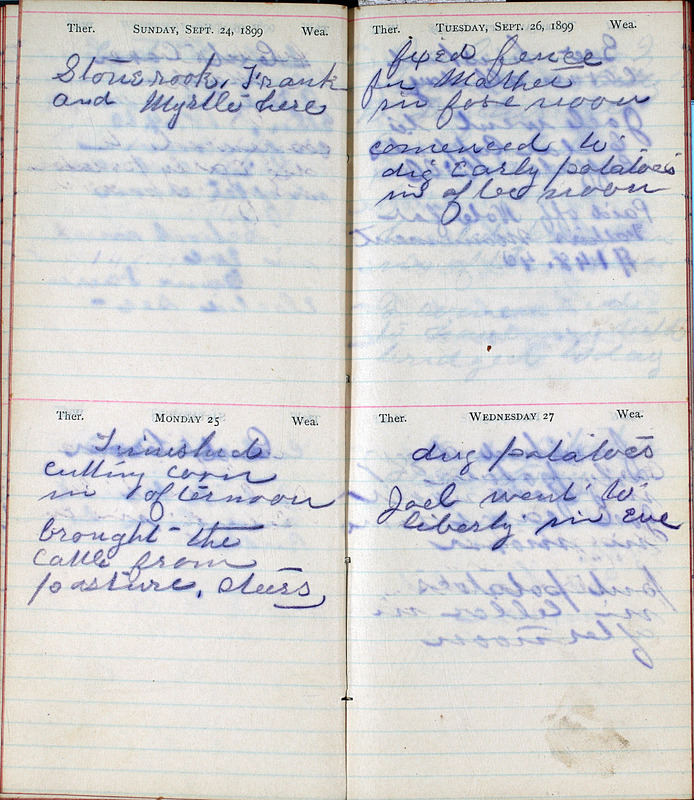 Ther. SUNDAY, SEPT. 24, 1899 Wea.
Stonerook, Frank
and Myrtle here
Ther. MONDAY 25 Wea.
Finished
cutting corn
in afternoon
brought the
catle from
pasture, steers
Ther. TUESDAY, SEPT. 26, 1899 Wea.
fixed fence
for Mother
in fore noon
comenced to
dig Early potatoes
in after noon
Ther. WEDNESDAY 27 Wea.
dug potatoes
Joel went to
liberty in Eve